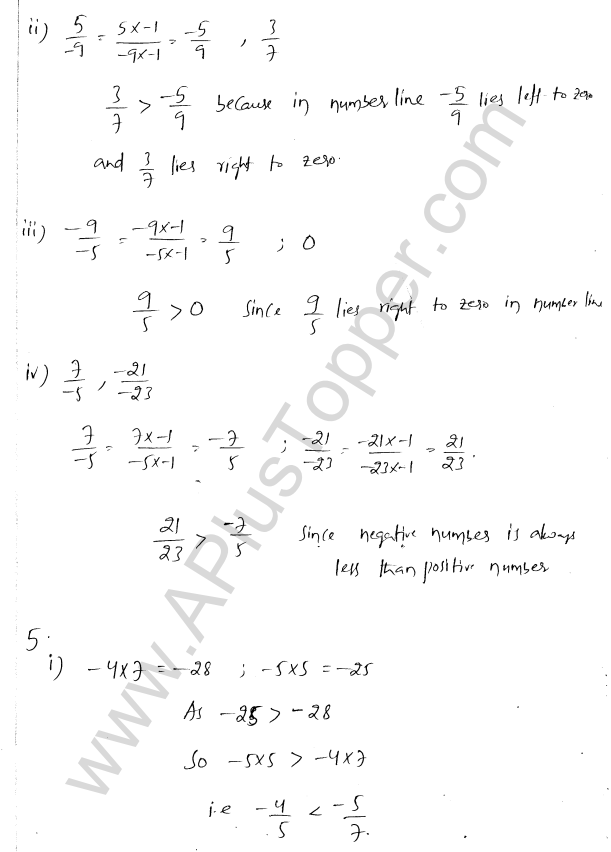 ii) 5/-9 = 5×-1/-9×-1 = -5/9 , 3/7
3/7 > -5/9 because in number line -5/9 lies left to zero
and 3/7 lies right to zero.
iii) -9/-5 = -9×-1/-5×-1 = 9/5 ; 0
9/5 > 0 Since 9/5 lies right to zero in number line
iv) 7/-5 , -21/-23
7/-5 = 7×-1/-5×-1 = -7/5 ; -21/-23 = -21×-1/-23×-1 = 21/23.
21/23 > -7/5 Since negative number is always
less than positive number
5.
i) -4×7 = -28 ; -5×5 = -25
As -25 > -28
So -5×5 > -4×7
i.e -4/5 < -5/7.
www.APlusTopper.com